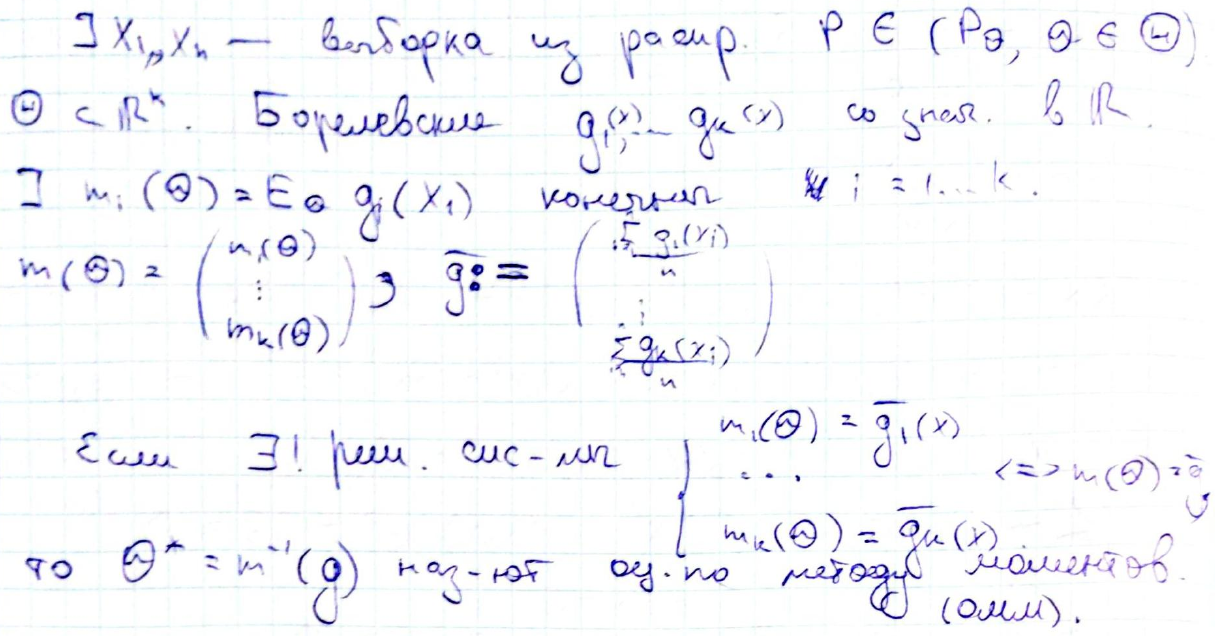 ] X₁,,Xₙ — выборка из распр. P ∈ (P_θ, θ ∈ Θ)
Θ ⊂ ℝᵏ. Борелевские g₁(x),... gₖ(x) со знач. в ℝ.
] mᵢ(Θ) = E_Θ gᵢ(X₁) конечны i = 1...k.
m(Θ) = (m₁(Θ) ⋮ mₖ(Θ)), g̅ := (Σ g₁(xᵢ)/n ⋮ Σ gₖ(xᵢ)/n)
Если ∃! реш. сис-мы { m₁(Θ) = g̅₁(x) ... mₖ(Θ) = g̅ₖ(x) <=> m(Θ) = g̅
то Θ* = m⁻¹(g) наз-ют оц. по методу моментов.
(ОММ).